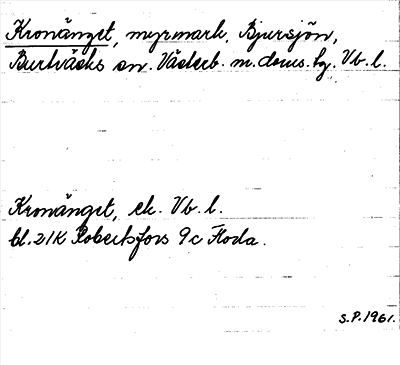 Kronänget, myrmark, Bjursjön,
Burträsks sn. Västerb. m. doms. hg. Vb. l.
Kronänget, ek. Vb. l.
bl. 21K Robertsfors 9c Floda.
S.P. 1961.